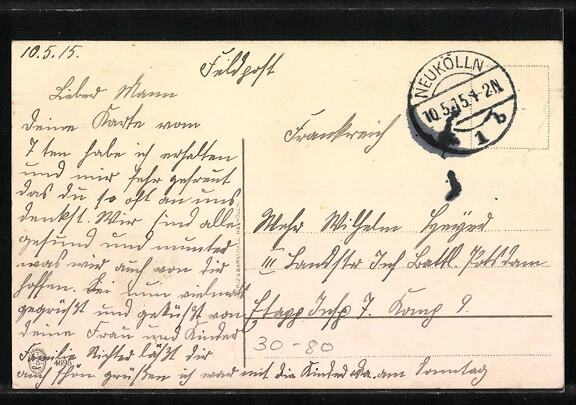 10.5.15.
Feldpost
Lieber Mann
deine Karte vom
7 ten habe ich erhalten
und mir sehr gefreut
das du so oft an uns
denkst. Wir sind alle
gesund und munter
was wir auch von dir
hoffen. Sei nun vielmals
gegrüßt und geküßt von
deine Frau und Kinder
Familie Richter läßt dir
auch schön grüßen ich war mit die Kinder da. am Sonntag
NEUKÖLLN
10.5.15.4-2N
1 b
Frankreich
Wehr Wilhelm
III Landstr Inf Battl. Potsdam
Etapp Insp 7. Komp 9.
30-80